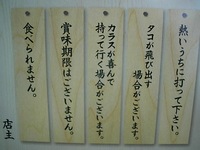 熱いうちに打って下さい。
タコが飛び出す
場合がございます。
カラスが喜んで
持って行く場合がございます。
賞味期限はございません。
食べられません。
店主